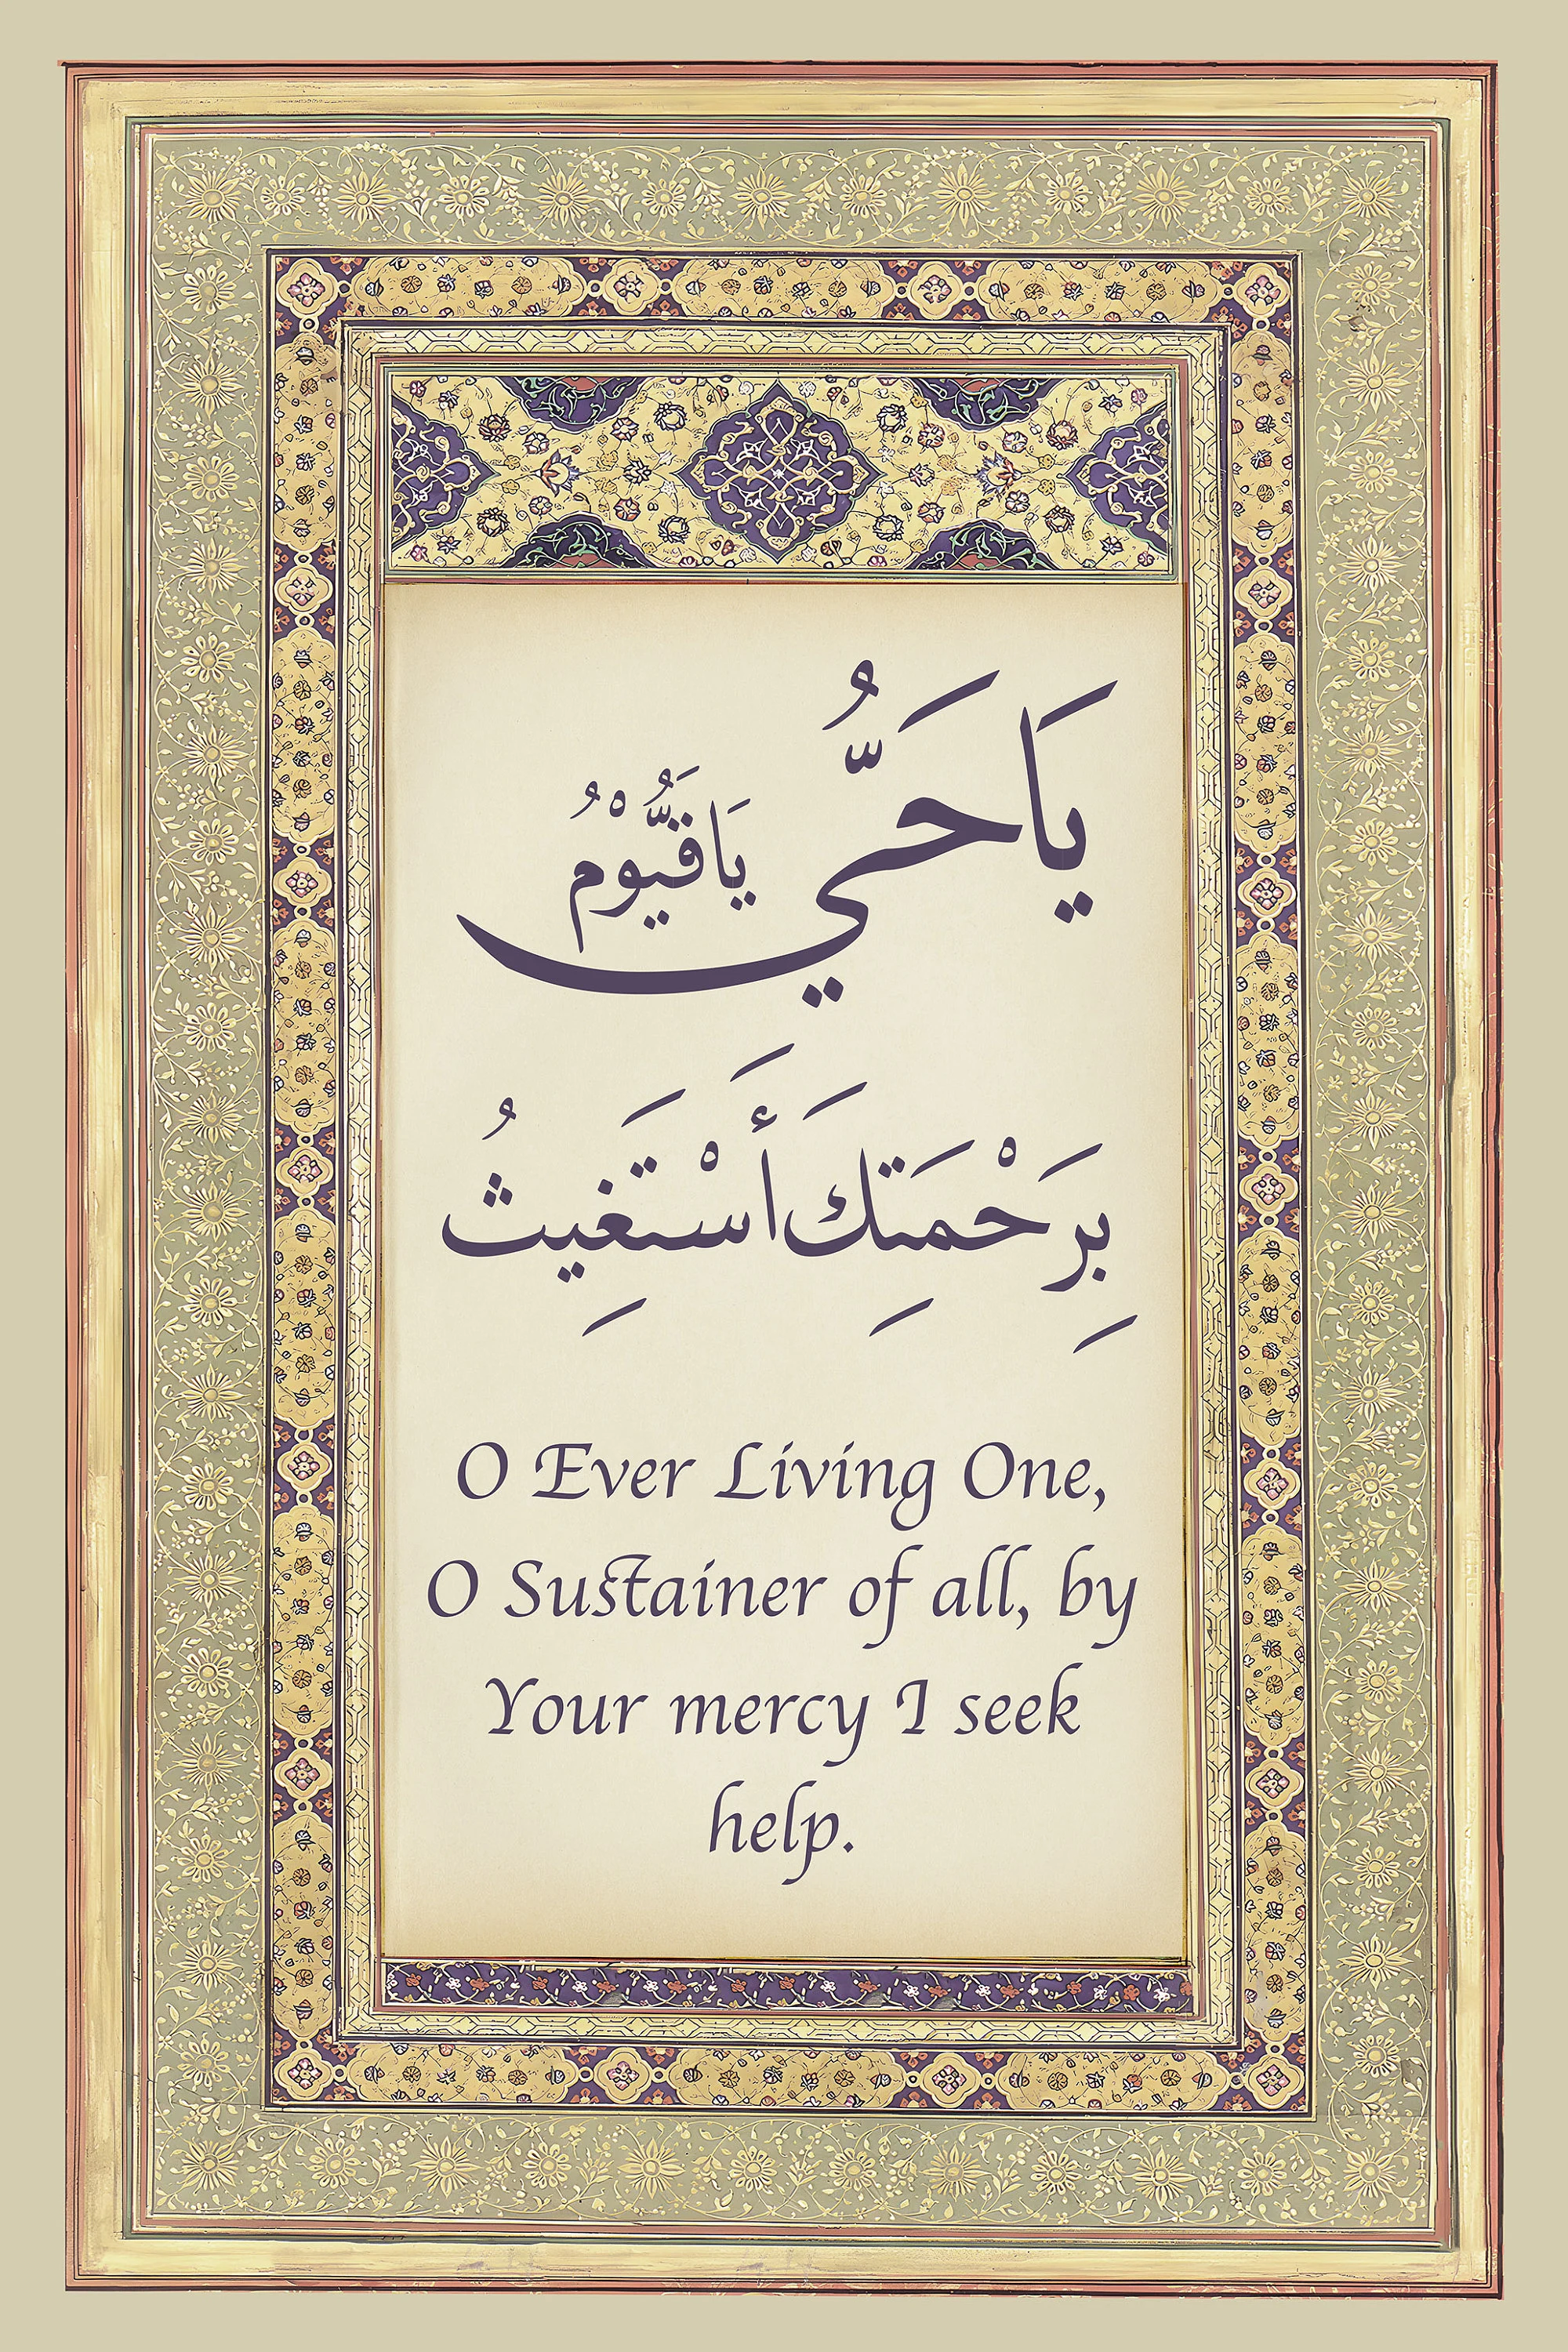 يَا حَيُّ يَا قَيُّوْمُ
بِرَحْمَتِكَ أَسْتَغِيثُ
O Ever Living One,
O Sustainer of all, by
Your mercy I seek
help.